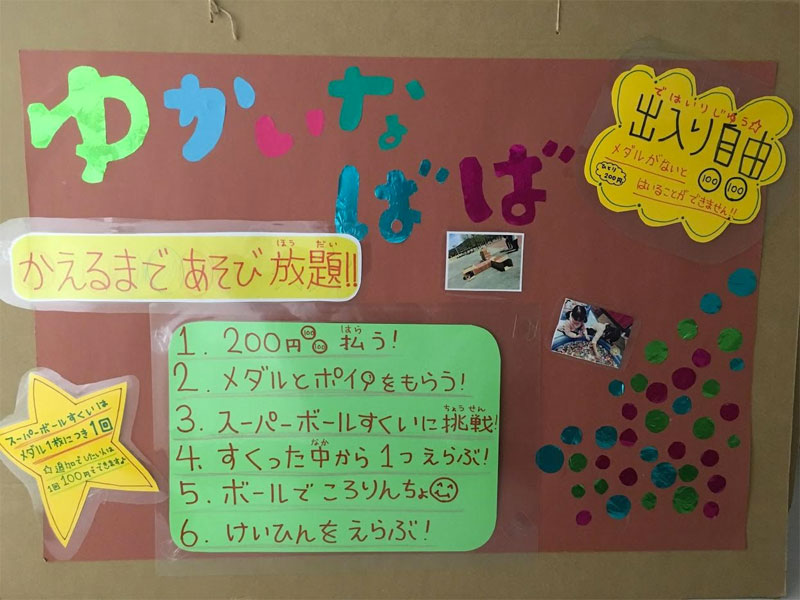 ゆかいな
ばば
ではいりじゆう☆
出入り自由
メダルがないと
ひとり
200円
100 100
はいることができません!!
かえるまで あそび 放題!!
ほう だい
1. 200円 100 100 払う!
はら
2. メダルとポイをもらう!
3. スーパーボールすくいに挑戦!
ちょうせん
4. すくった中から1つえらぶ!
なか
5. ボールでころりんちょ
6. けいひんをえらぶ!
スーパーボールすくいは
メダル1枚につき1回
☆追加でしたい人は
1回100円でできます♪